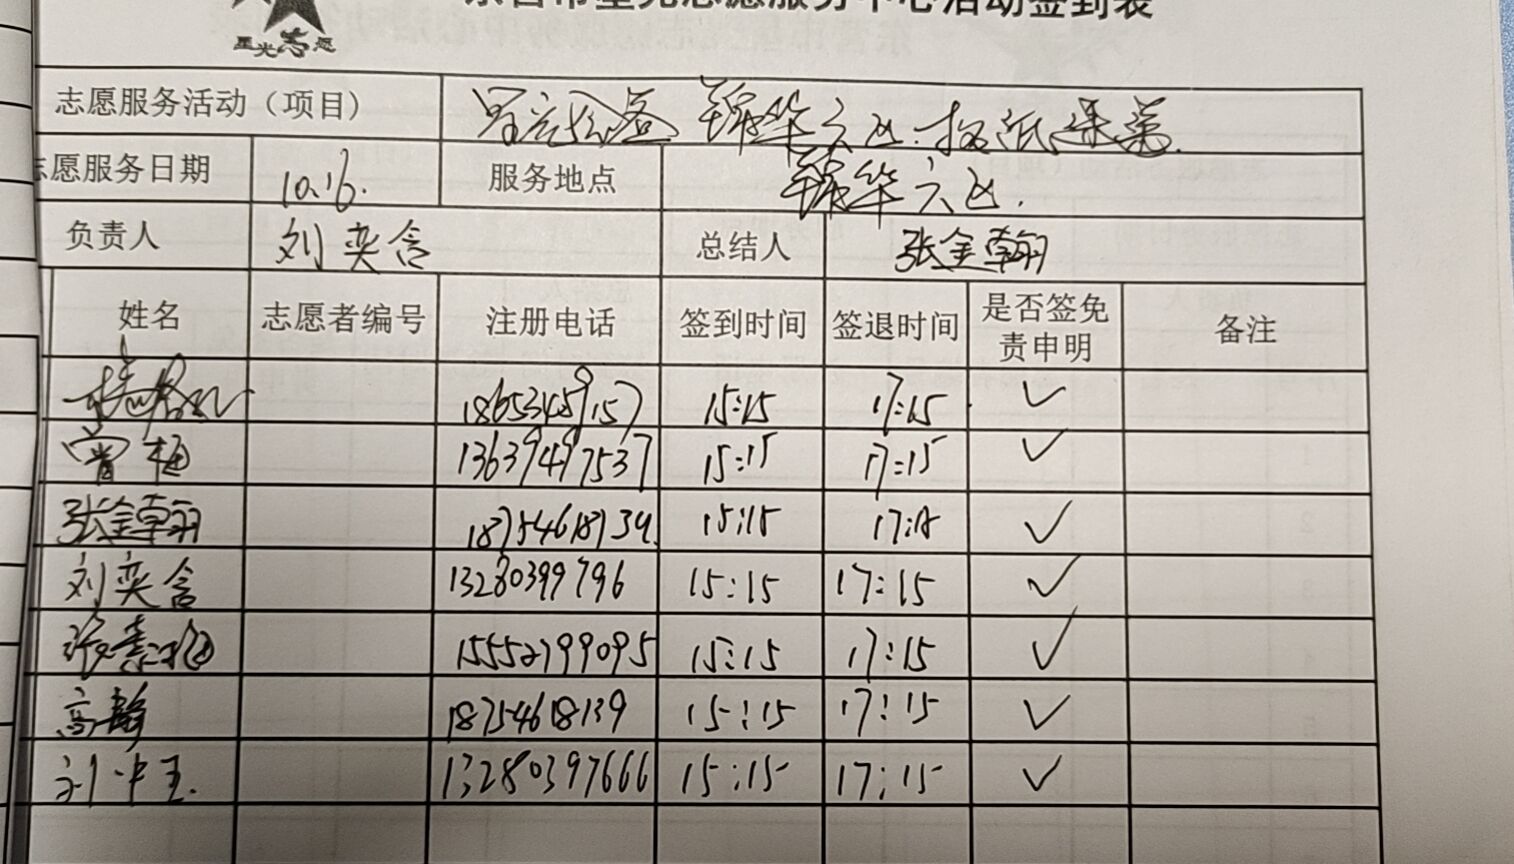 东营市星光志愿服务中心活动签到表
星光志愿
志愿服务活动（项目）
锦华六区
志愿服务日期 10.16. 服务地点 锦华六区.
负责人 刘奕含 总结人 张金卓羽
姓名 志愿者编号 注册电话 签到时间 签退时间 是否签免责申明 备注
18653459157 15:15 17:15 ✓
曾梅 13639497537 15:15 17:15 ✓
张金卓羽 18754618739 15:15 17:15 ✓
刘奕含 13280399796 15:15 17:15 ✓
15552799095 15:15 17:15 ✓
高静 18754618139 15:15 17:15 ✓
13280397666 15:15 17:15 ✓